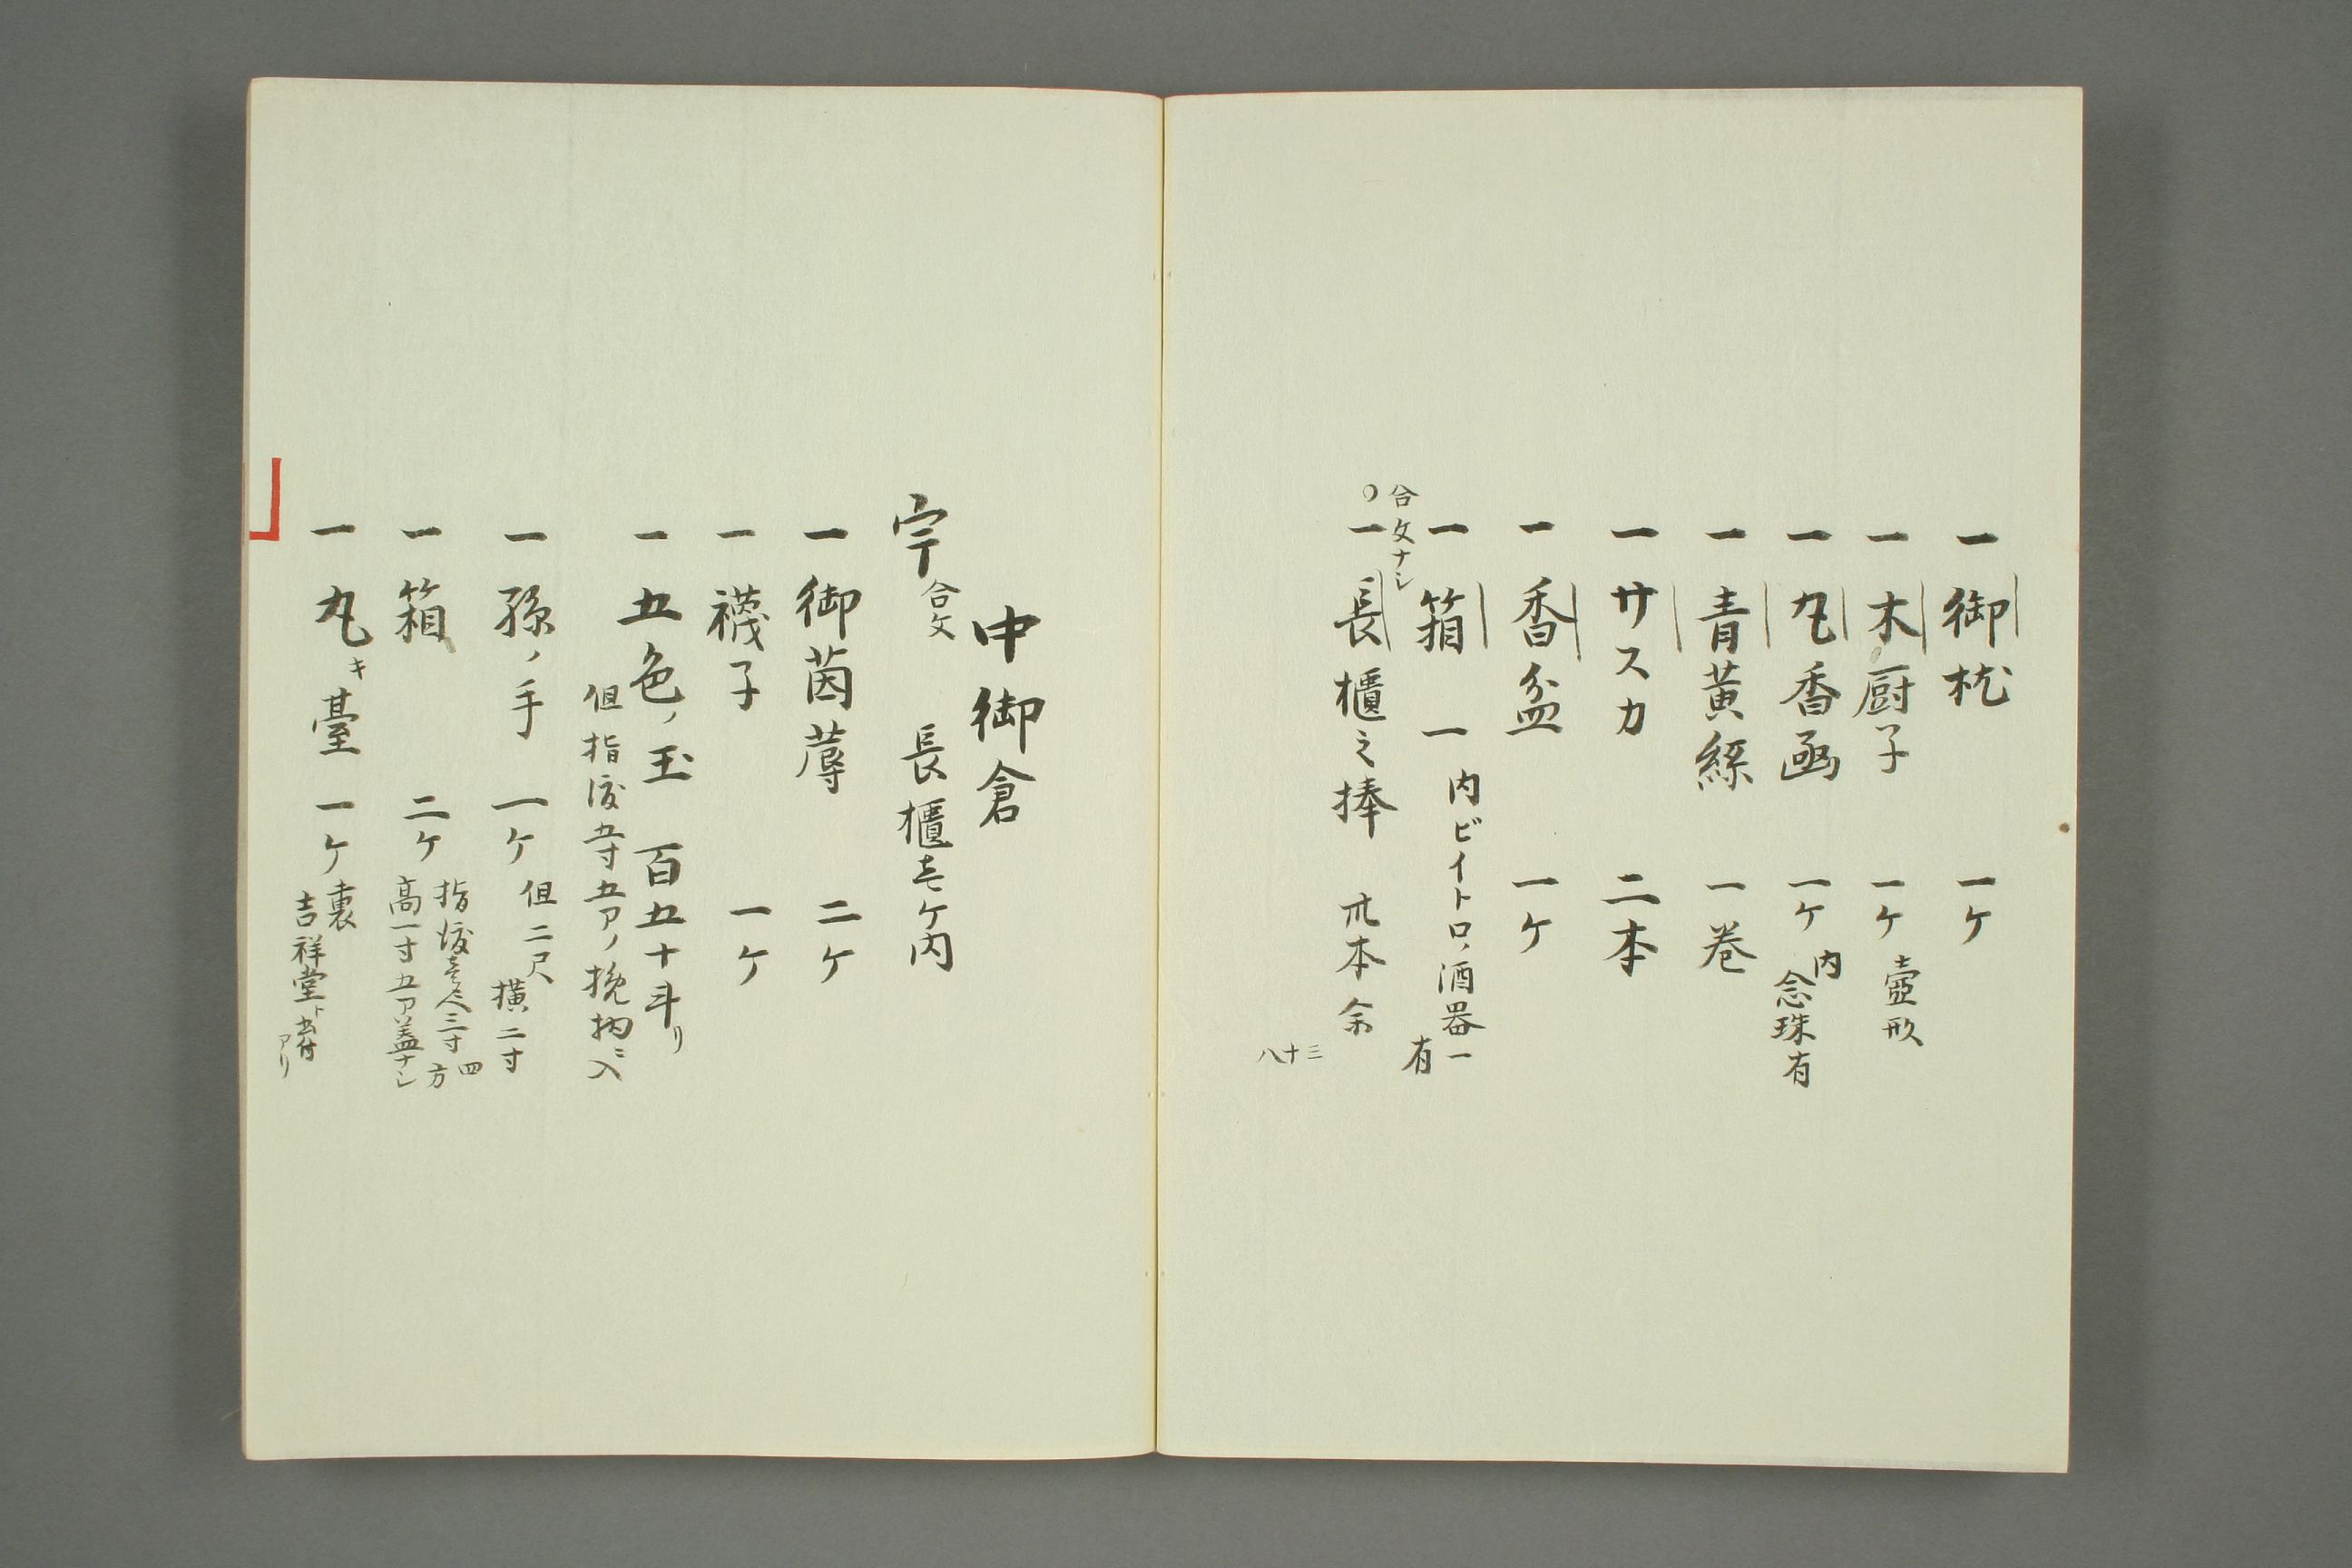 一御枕　一ケ
一木厨子　一ケ　壷形
一丸香凾　一ケ　内
念珠有
一青黄絲　一巻
一サスカ　二本
一香盆　一ケ
一箱　一　内ビイトロノ酒器一
有
合文ナシ
一長櫃之捧　卅本余
三十八
中御倉
宇　合文　長櫃壱ケ内
一御茵蓐　二ケ
一襪子　一ケ
一五色ノ玉　百五十斗リ
但指渡五寸五アノ挽物ニ入
一孫ノ手　一ケ　但二尺
横二寸
一箱　二ケ　指渡壱尺三寸四方
高一寸五ア蓋ナシ
一丸キ臺　一ケ　裏
吉祥堂ト書付アリ